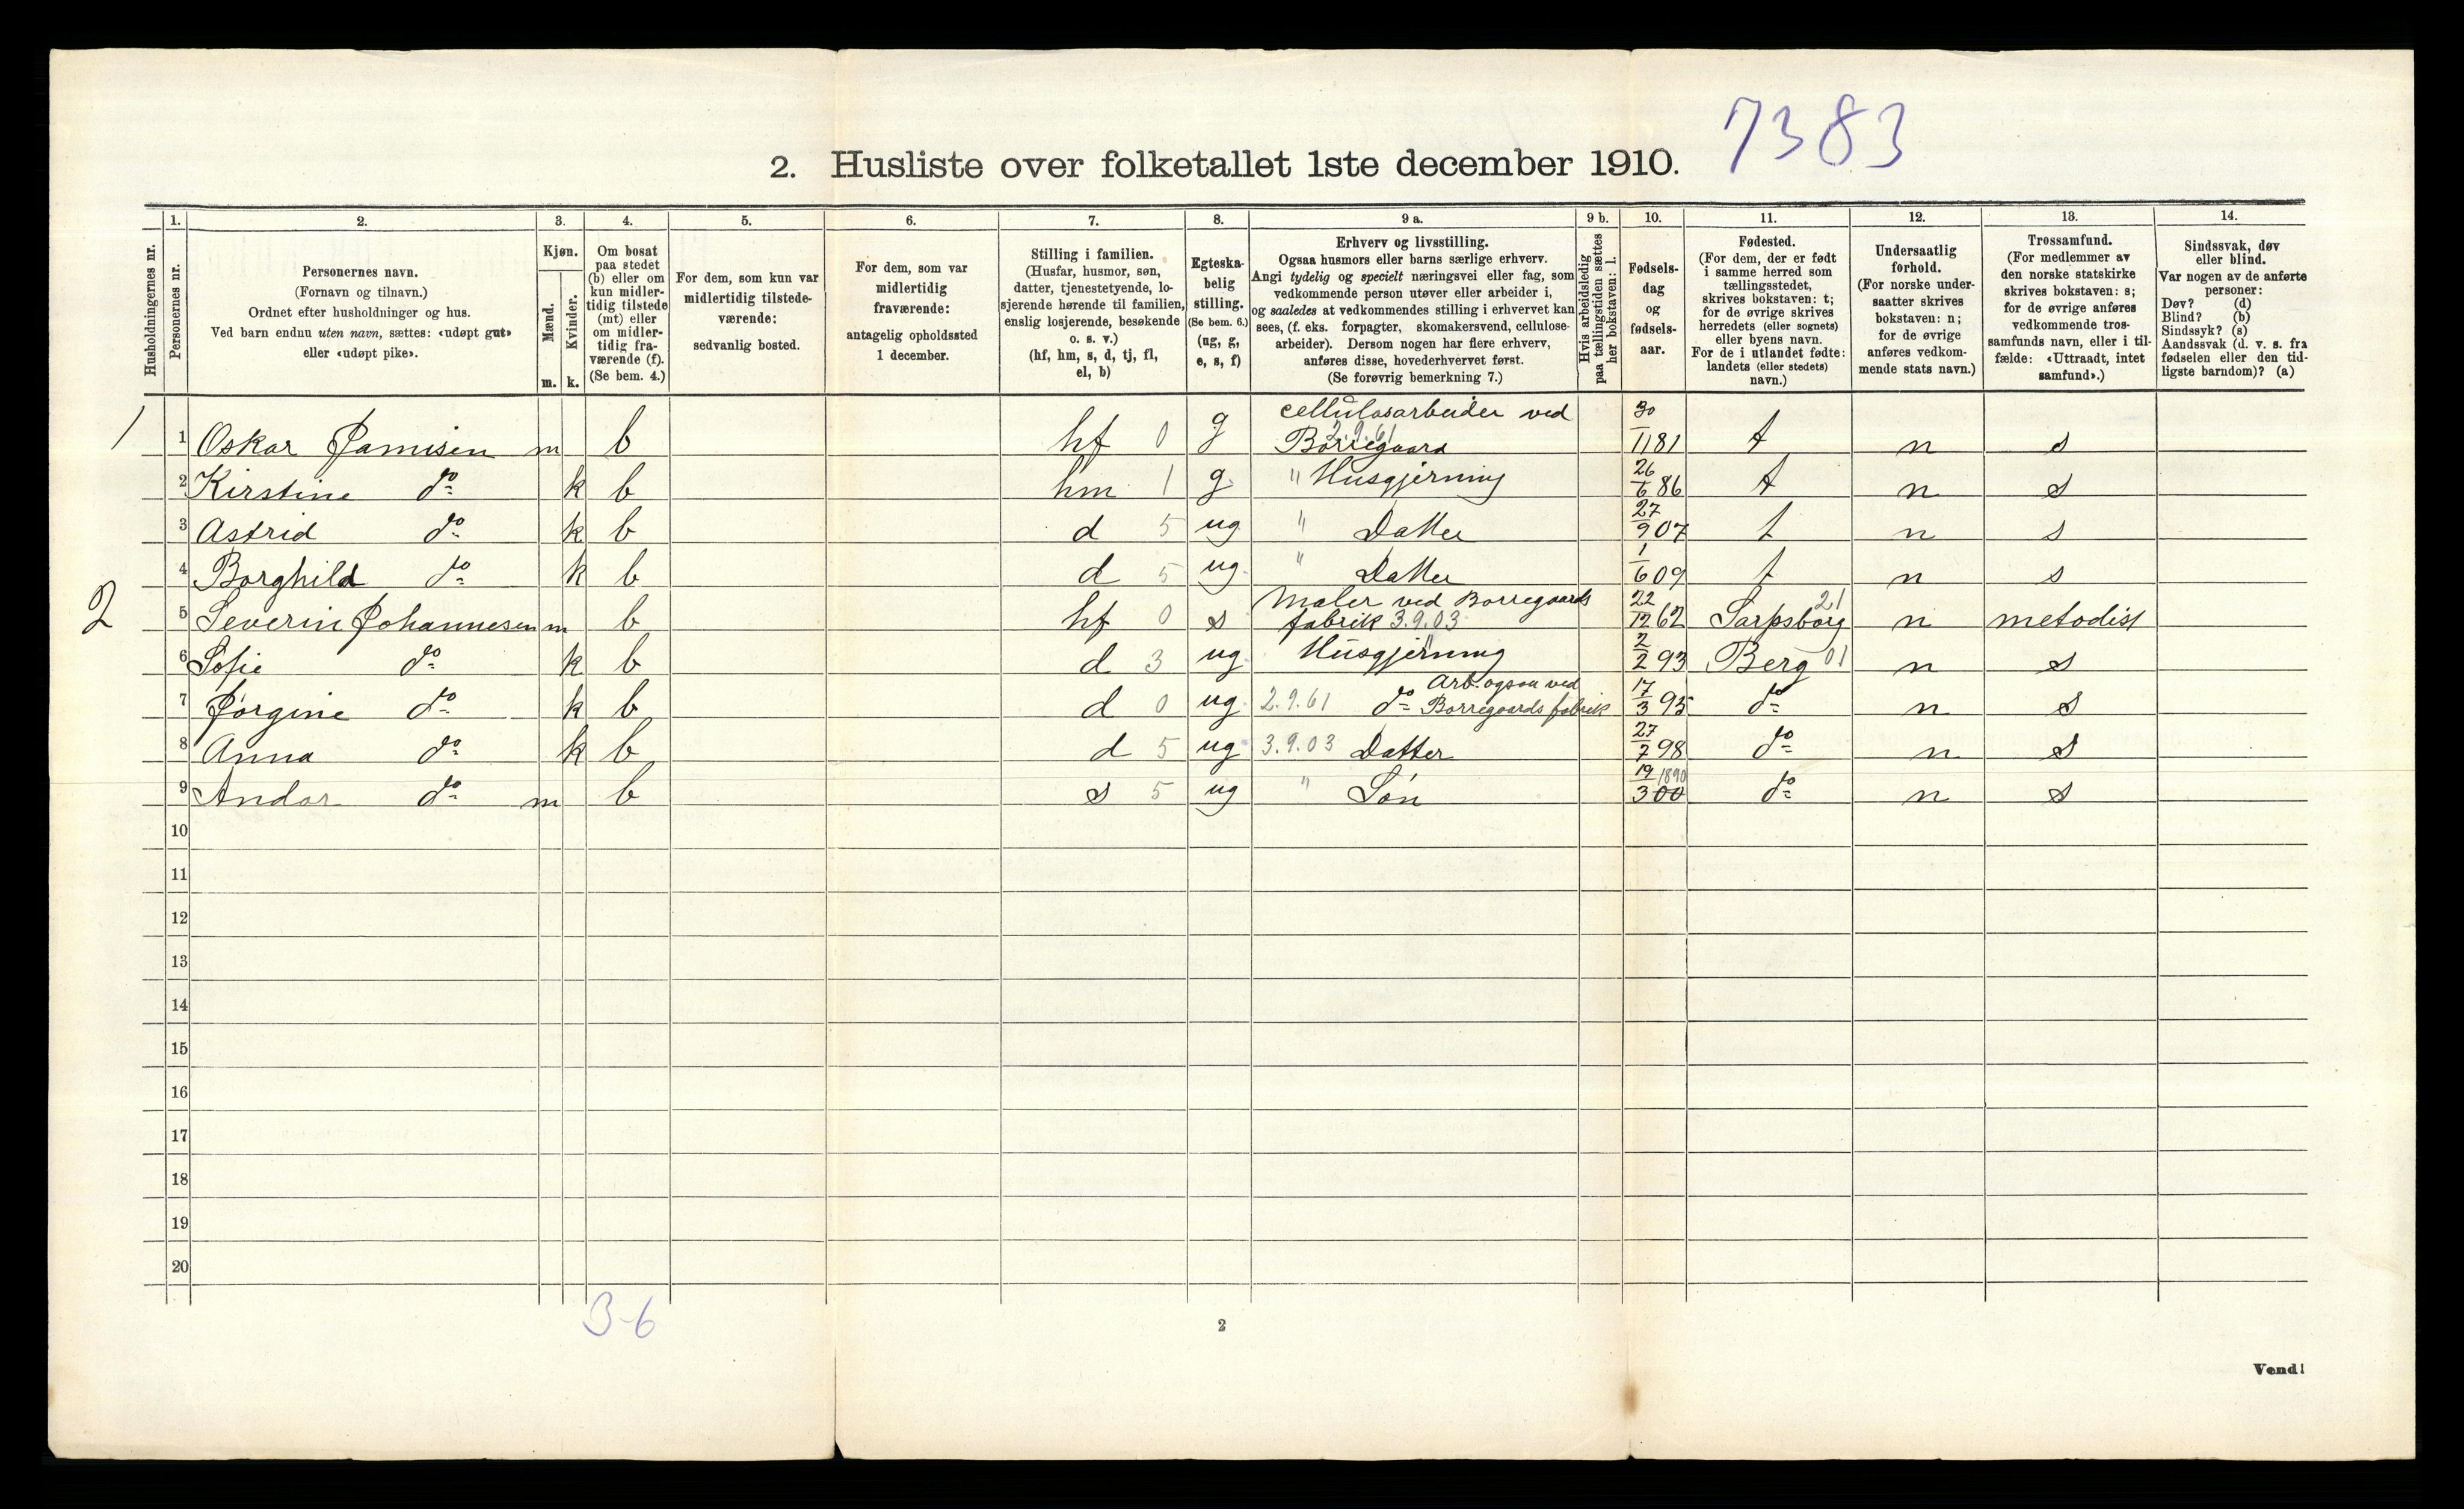 7383
2. Husliste over folketallet 1ste december 1910.
Husholdningernes nr.
1.
Personernes nr.
2.
Personernes navn.
(Fornavn og tilnavn.)
Ordnet efter husholdninger og hus.
Ved barn endnu uten navn, sættes: «udøpt gut»
eller «udøpt pike».
3.
Kjøn.
Mænd.
Kvinder.
m. k.
4.
Om bosat
paa stedet
(b) eller om
kun midler-
tidig tilstede
(mt) eller
om midler-
tidig fra-
værende (f).
(Se bem. 4.)
5.
For dem, som kun var
midlertidig tilstede-
værende:
sedvanlig bosted.
6.
For dem, som var
midlertidig
fraværende:
antagelig opholdssted
1 december.
7.
Stilling i familien.
(Husfar, husmor, søn,
datter, tjenestetyende, lo-
sjerende hørende til familien,
enslig losjerende, besøkende
o. s. v.)
(hf, hm, s, d, tj, fl,
el, b)
8.
Egteska-
belig
stilling.
(Se bem. 6.)
(ug, g,
e, s, f)
9 a.
Erhverv og livsstilling.
Ogsaa husmors eller barns særlige erhverv.
Angi tydelig og specielt næringsvei eller fag, som
vedkommende person utøver eller arbeider i,
og saaledes at vedkommendes stilling i erhvervet kan
sees, (f. eks. forpagter, skomakersvend, cellulose-
arbeider). Dersom nogen har flere erhverv,
anføres disse, hovederhvervet først.
(Se forøvrig bemerkning 7.)
9 b.
Hvis arbeidsledig
paa tællingstiden sættes
her bokstaven: l.
10.
Fødsels-
dag
og
fødsels-
aar.
11.
Fødested.
(For dem, der er født
i samme herred som
tællingsstedet,
skrives bokstaven: t;
for de øvrige skrives
herredets (eller sognets)
eller byens navn.
For de i utlandet fødte:
landets (eller stedets)
navn.)
12.
Undersaatlig
forhold.
(For norske under-
saatter skrives
bokstaven: n;
for de øvrige
anføres vedkom-
mende stats navn.)
13.
Trossamfund.
(For medlemmer av
den norske statskirke
skrives bokstaven: s;
for de øvrige anføres
vedkommende tros-
samfunds navn, eller i til-
fælde: «Uttraadt, intet
samfund».)
14.
Sindssvak, døv
eller blind.
Var nogen av de anførte
personer:
Døv? (d)
Blind? (b)
Sindssyk? (s)
Aandssvak (d. v. s. fra
fødselen eller den tid-
ligste barndom)? (a)
1 1 Oskar Jamisen m b hf 0 g cellulosarbeider ved Borregaard 2.9.61 30/11 81 t n s
2 Kirstine do k b hm 1 g " Husgjerning 26/6 86 t n s
3 Astrid do k b d 5 ug " Datter 27/9 07 t n s
4 Borghild do k b d 5 ug " Datter 1/6 09 t n s
2 5 Severin Johannesen m b hf 0 s Maler ved Borregaards fabrik 3.9.03 22/12 62 Sarpsborg 21 n metodist
6 Sofie do k b d 3 ug " Husgjerning 2/2 93 Berg 01 n s
7 Jørgine do k b d 0 ug 2.9.61 do Arb. ogsaa ved Borregaards fabrik 17/3 95 do n s
8 Anna do k b d 5 ug 3.9.03 Datter 27/7 98 do n s
9 Andor do m b s 5 ug " Søn 19/3 00 1890 do n s
10
11
12
13
14
15
16
17
18
19
20
3-6
2
Vend!